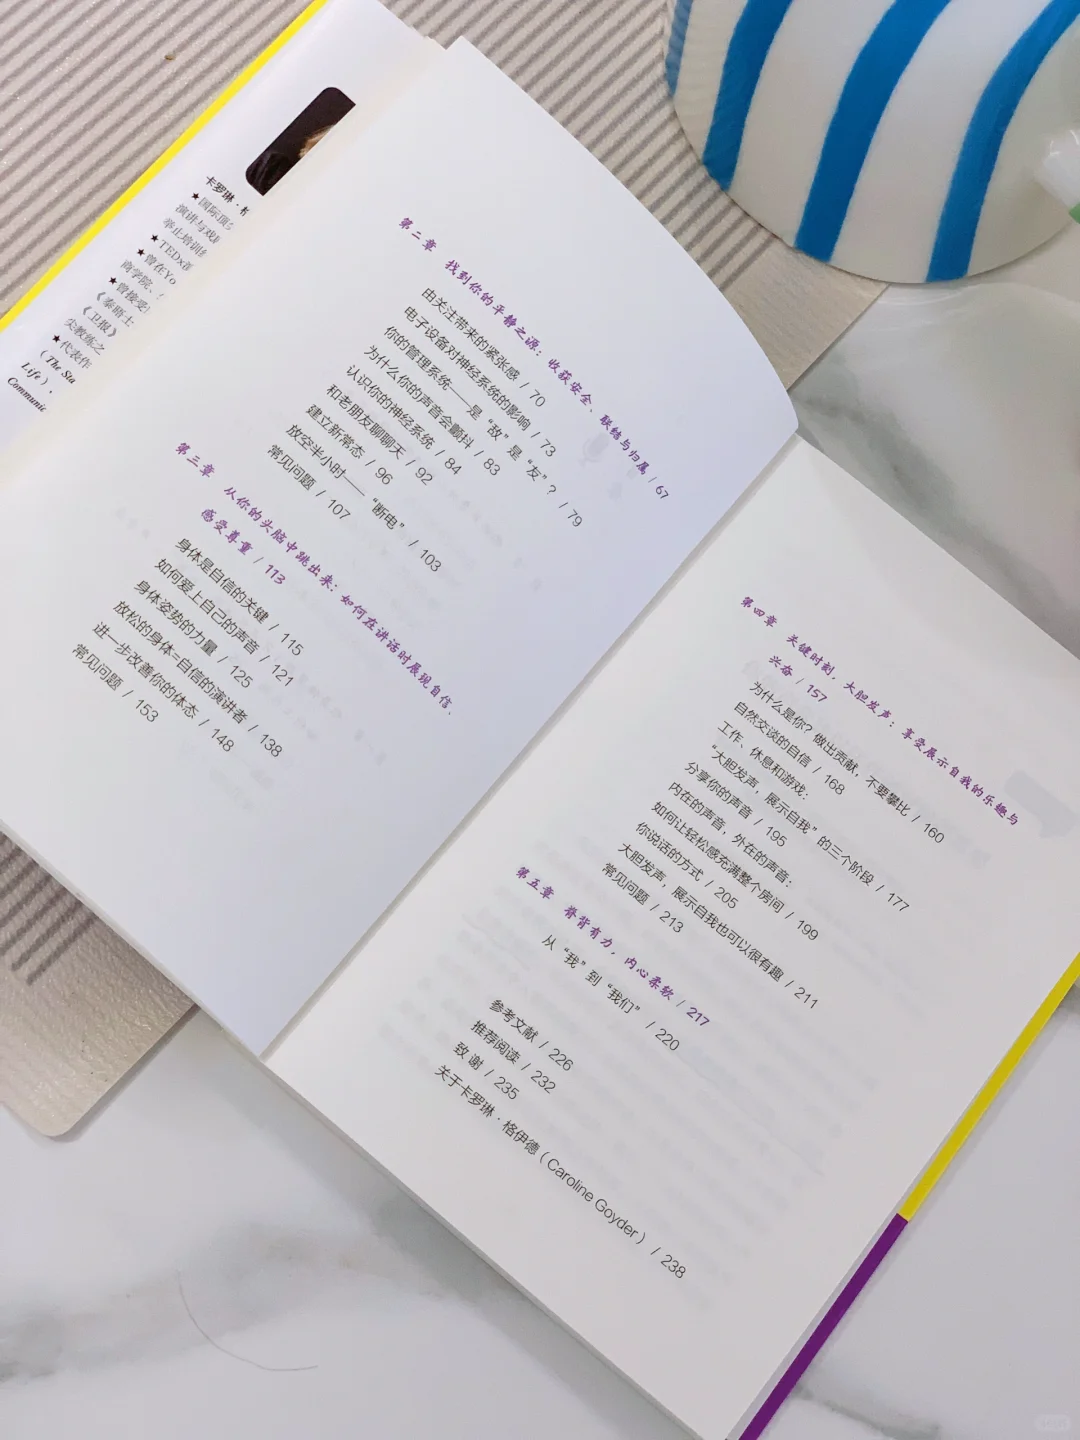 卡罗琳·
★国际顶
演讲与戏
举止培训
★TEDx
★曾在Yo
商学院、
★曾接受
《泰晤士
《卫报》
尖教练之
★代表作
(The Sta
Life),
Communic
第二章 找到你的平静之源：收获安全、联结与归属 / 67
由关注带来的紧张感 / 70
电子设备对神经系统的影响 / 73
你的管理系统——是“敌”是“友”？ / 79
为什么你的声音会颤抖 / 83
认识你的神经系统 / 84
和老朋友聊聊天 / 92
建立新常态 / 96
放空半小时——“断电” / 103
常见问题 / 107
第三章 从你的头脑中跳出来：如何在讲话时展现自信、
感受尊重 / 113
身体是自信的关键 / 115
如何爱上自己的声音 / 121
身体姿势的力量 / 125
放松的身体=自信的演讲者 / 138
进一步改善你的体态 / 148
常见问题 / 153
第四章 关键时刻，大胆发声：享受展示自我的乐趣与
兴奋 / 157
为什么是你？做出贡献，不要攀比 / 160
自然交谈的自信 / 168
工作、休息和游戏：
“大胆发声，展示自我”的三个阶段 / 177
分享你的声音 / 195
内在的声音，外在的声音：
如何让轻松感充满整个房间 / 199
你说话的方式 / 205
大胆发声，展示自我也可以很有趣 / 211
常见问题 / 213
第五章 脊背有力，内心柔软 / 217
从“我”到“我们” / 220
参考文献 / 226
推荐阅读 / 232
致 谢 / 235
关于卡罗琳·格伊德（Caroline Goyder） / 238